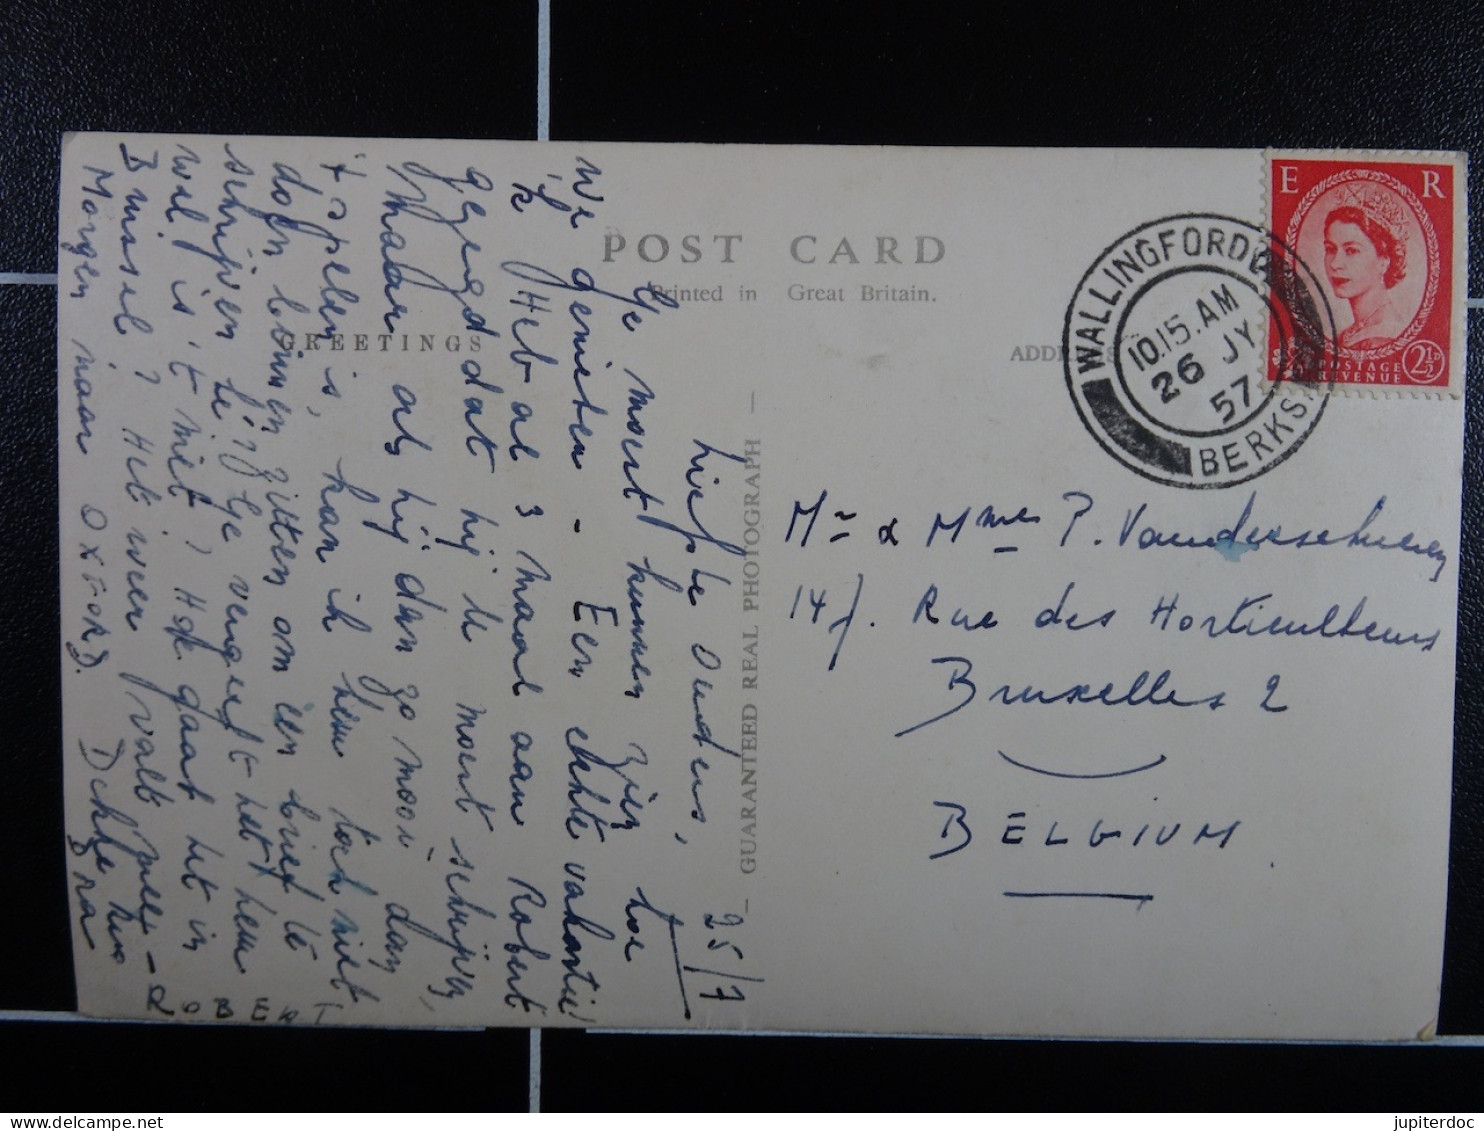 POST CARD
Printed in Great Britain.
GREETINGS
ADDRESS
— GUARANTEED REAL PHOTOGRAPH —
E R
POSTAGE
REVENUE
2½D
WALLINGFORD
10.15 AM
26 JY
57
BERKS.
25/7
Liefste Ouders,
Ge moest kunnen zien hoe
we genieten - Een echte vakantie!
ik Heb al 3 maal aan Robert
gezegd dat hij te moest schrijven,
Maar als hij dan zo mooi aan
't spelen is, kan ik hem toch niet
doen binnen zitten om een brief te
schrijven hé? Ge vergeeft het hem
wel is 't niet? Hoe gaat het in
Brussel? Het weer valt mee -
Morgen naar OXFORD.
ROBERT
Mr & Mme P. Vanderschueren
14 Rue des Horticulteurs
Bruxelles 2
BELGIUM
jupiterdoc
delcampe.net